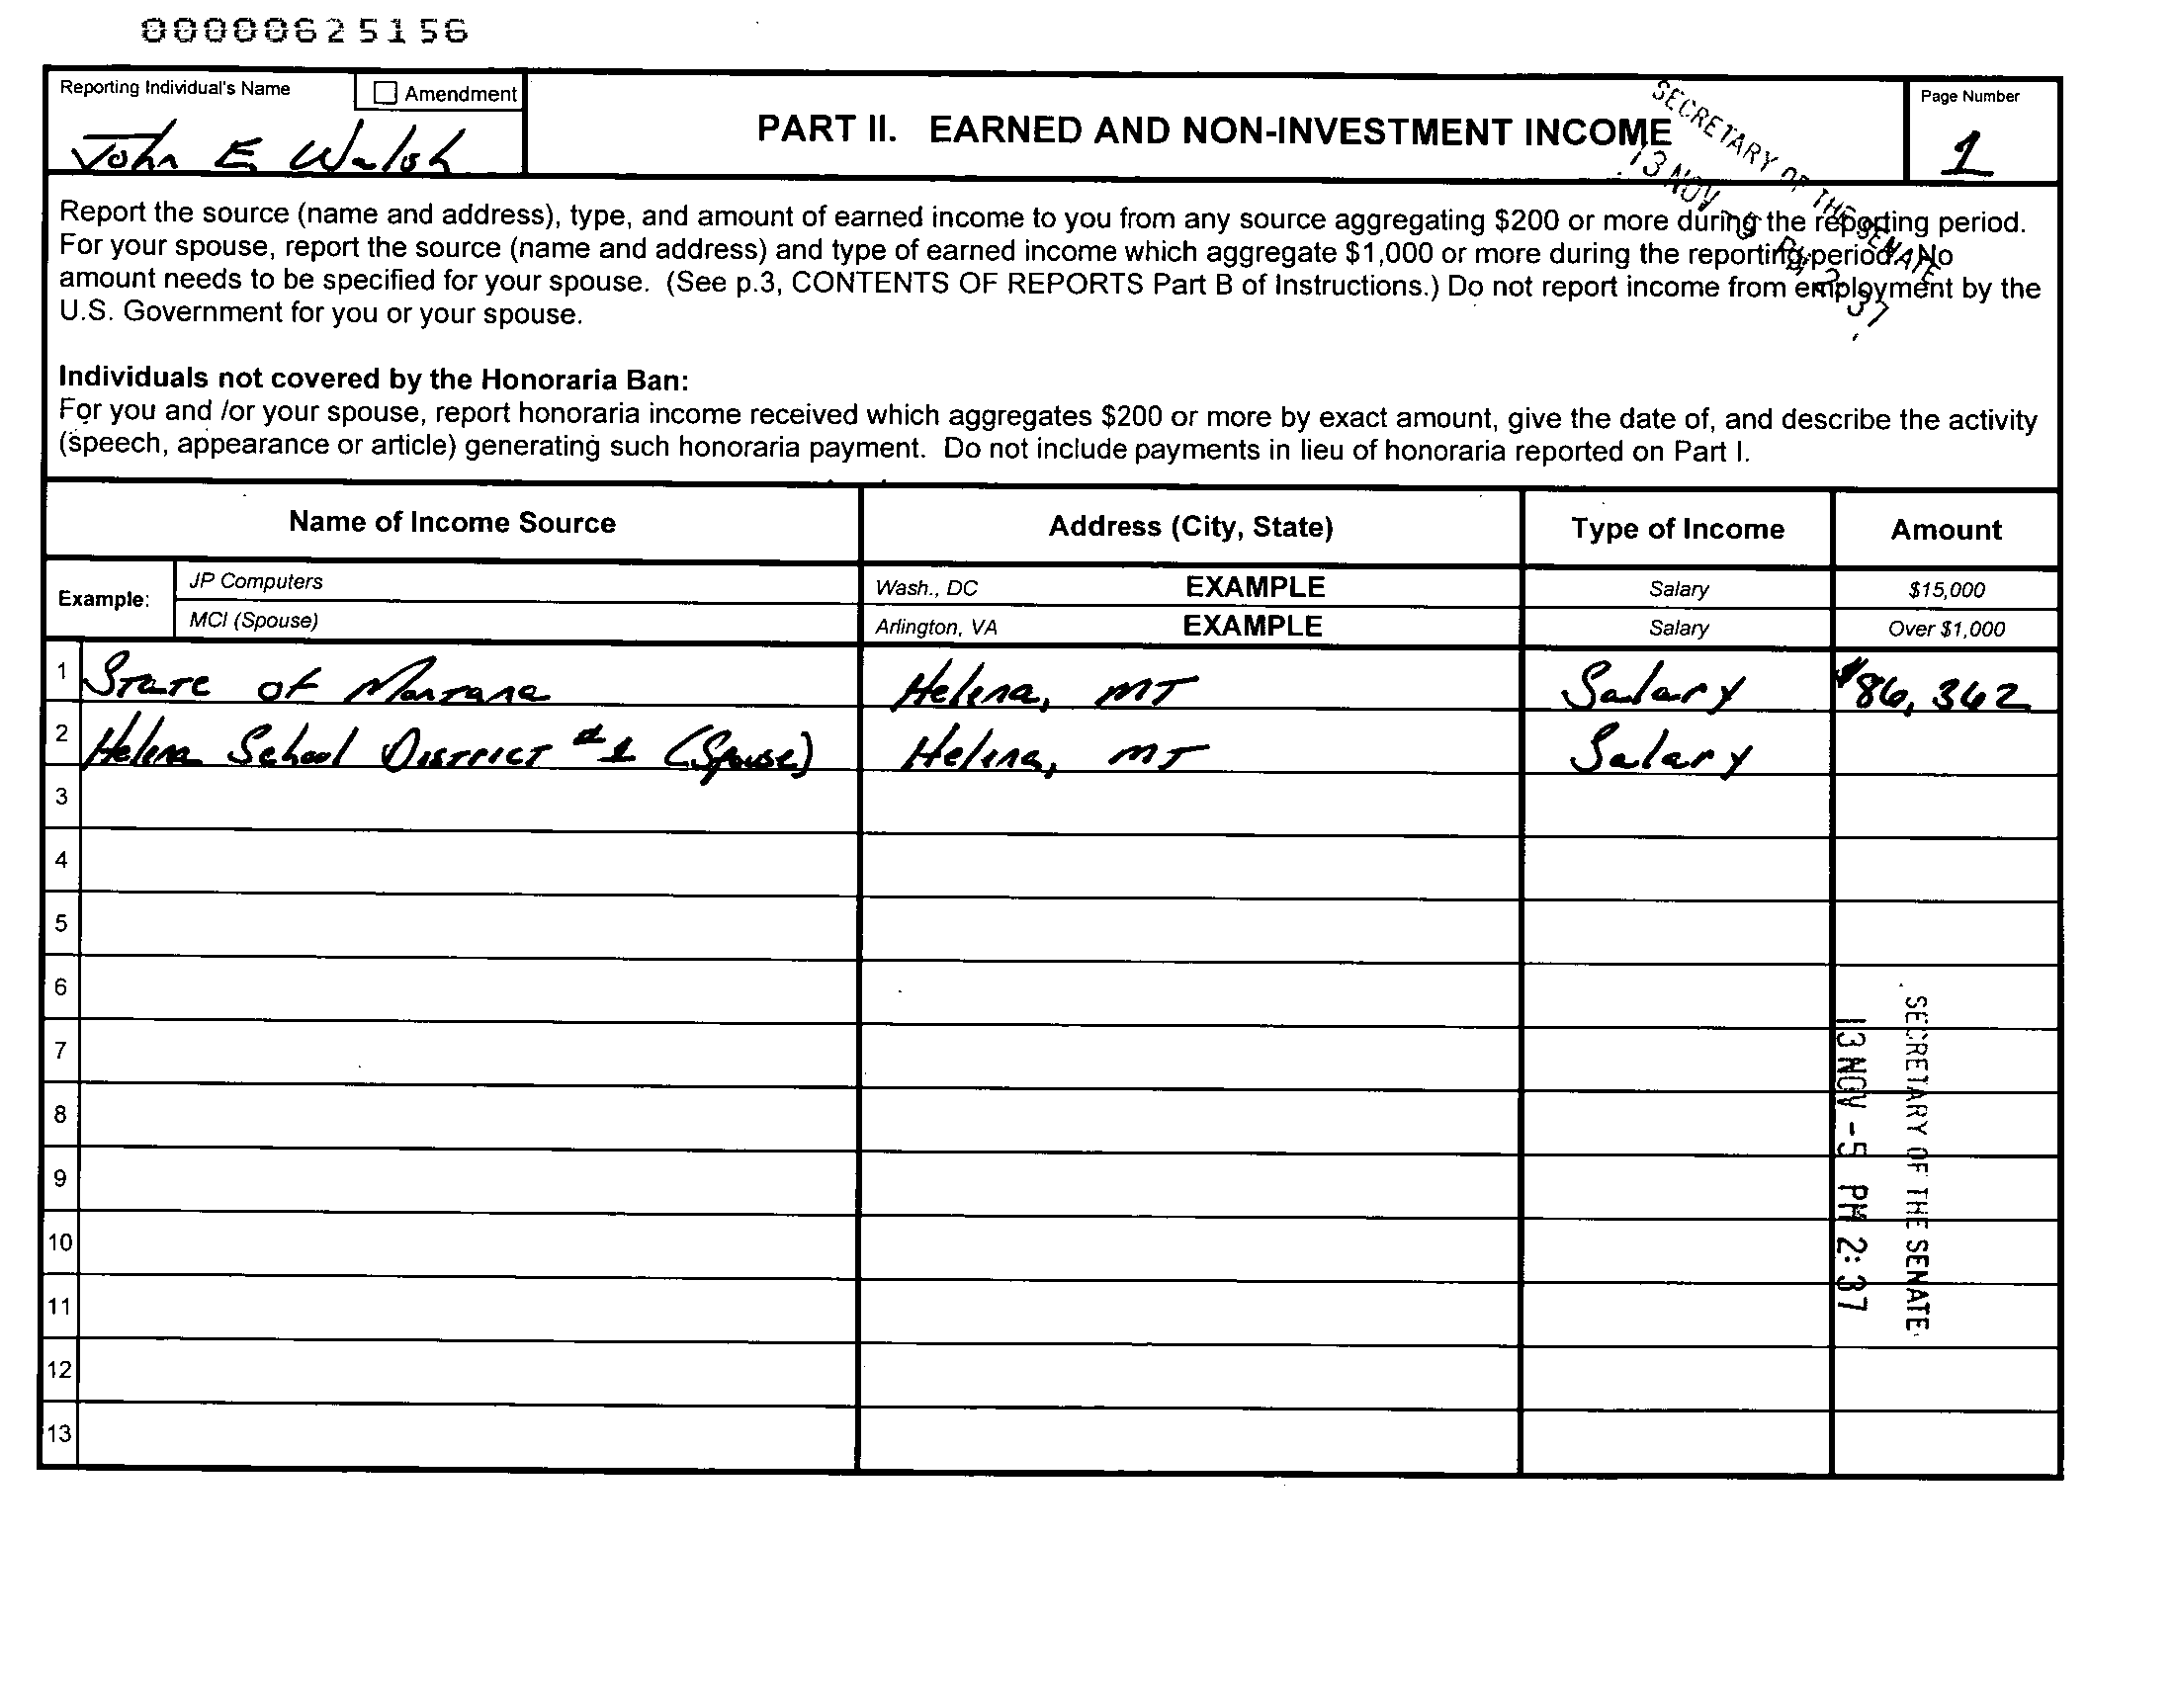 00000625156
Reporting Individual's Name
Amendment
John E Walsh
PART II. EARNED AND NON-INVESTMENT INCOME
Page Number
1
SECRETARY OF THE SENATE
13 NOV -5 PM 2:37
Report the source (name and address), type, and amount of earned income to you from any source aggregating $200 or more during the reporting period.
For your spouse, report the source (name and address) and type of earned income which aggregate $1,000 or more during the reporting period. No
amount needs to be specified for your spouse. (See p.3, CONTENTS OF REPORTS Part B of Instructions.) Do not report income from employment by the
U.S. Government for you or your spouse.
Individuals not covered by the Honoraria Ban:
For you and /or your spouse, report honoraria income received which aggregates $200 or more by exact amount, give the date of, and describe the activity
(speech, appearance or article) generating such honoraria payment. Do not include payments in lieu of honoraria reported on Part I.
Name of Income Source Address (City, State) Type of Income Amount
Example: JP Computers Wash., DC EXAMPLE Salary $15,000
MCI (Spouse) Arlington, VA EXAMPLE Salary Over $1,000
1 State of Montana Helena, MT Salary $86,362
2 Helena School District #1 (Spouse) Helena, MT Salary
3
4
5
6
7
8
9
10
11
12
13
SECRETARY OF THE SENATE
13 NOV -5 PM 2:37